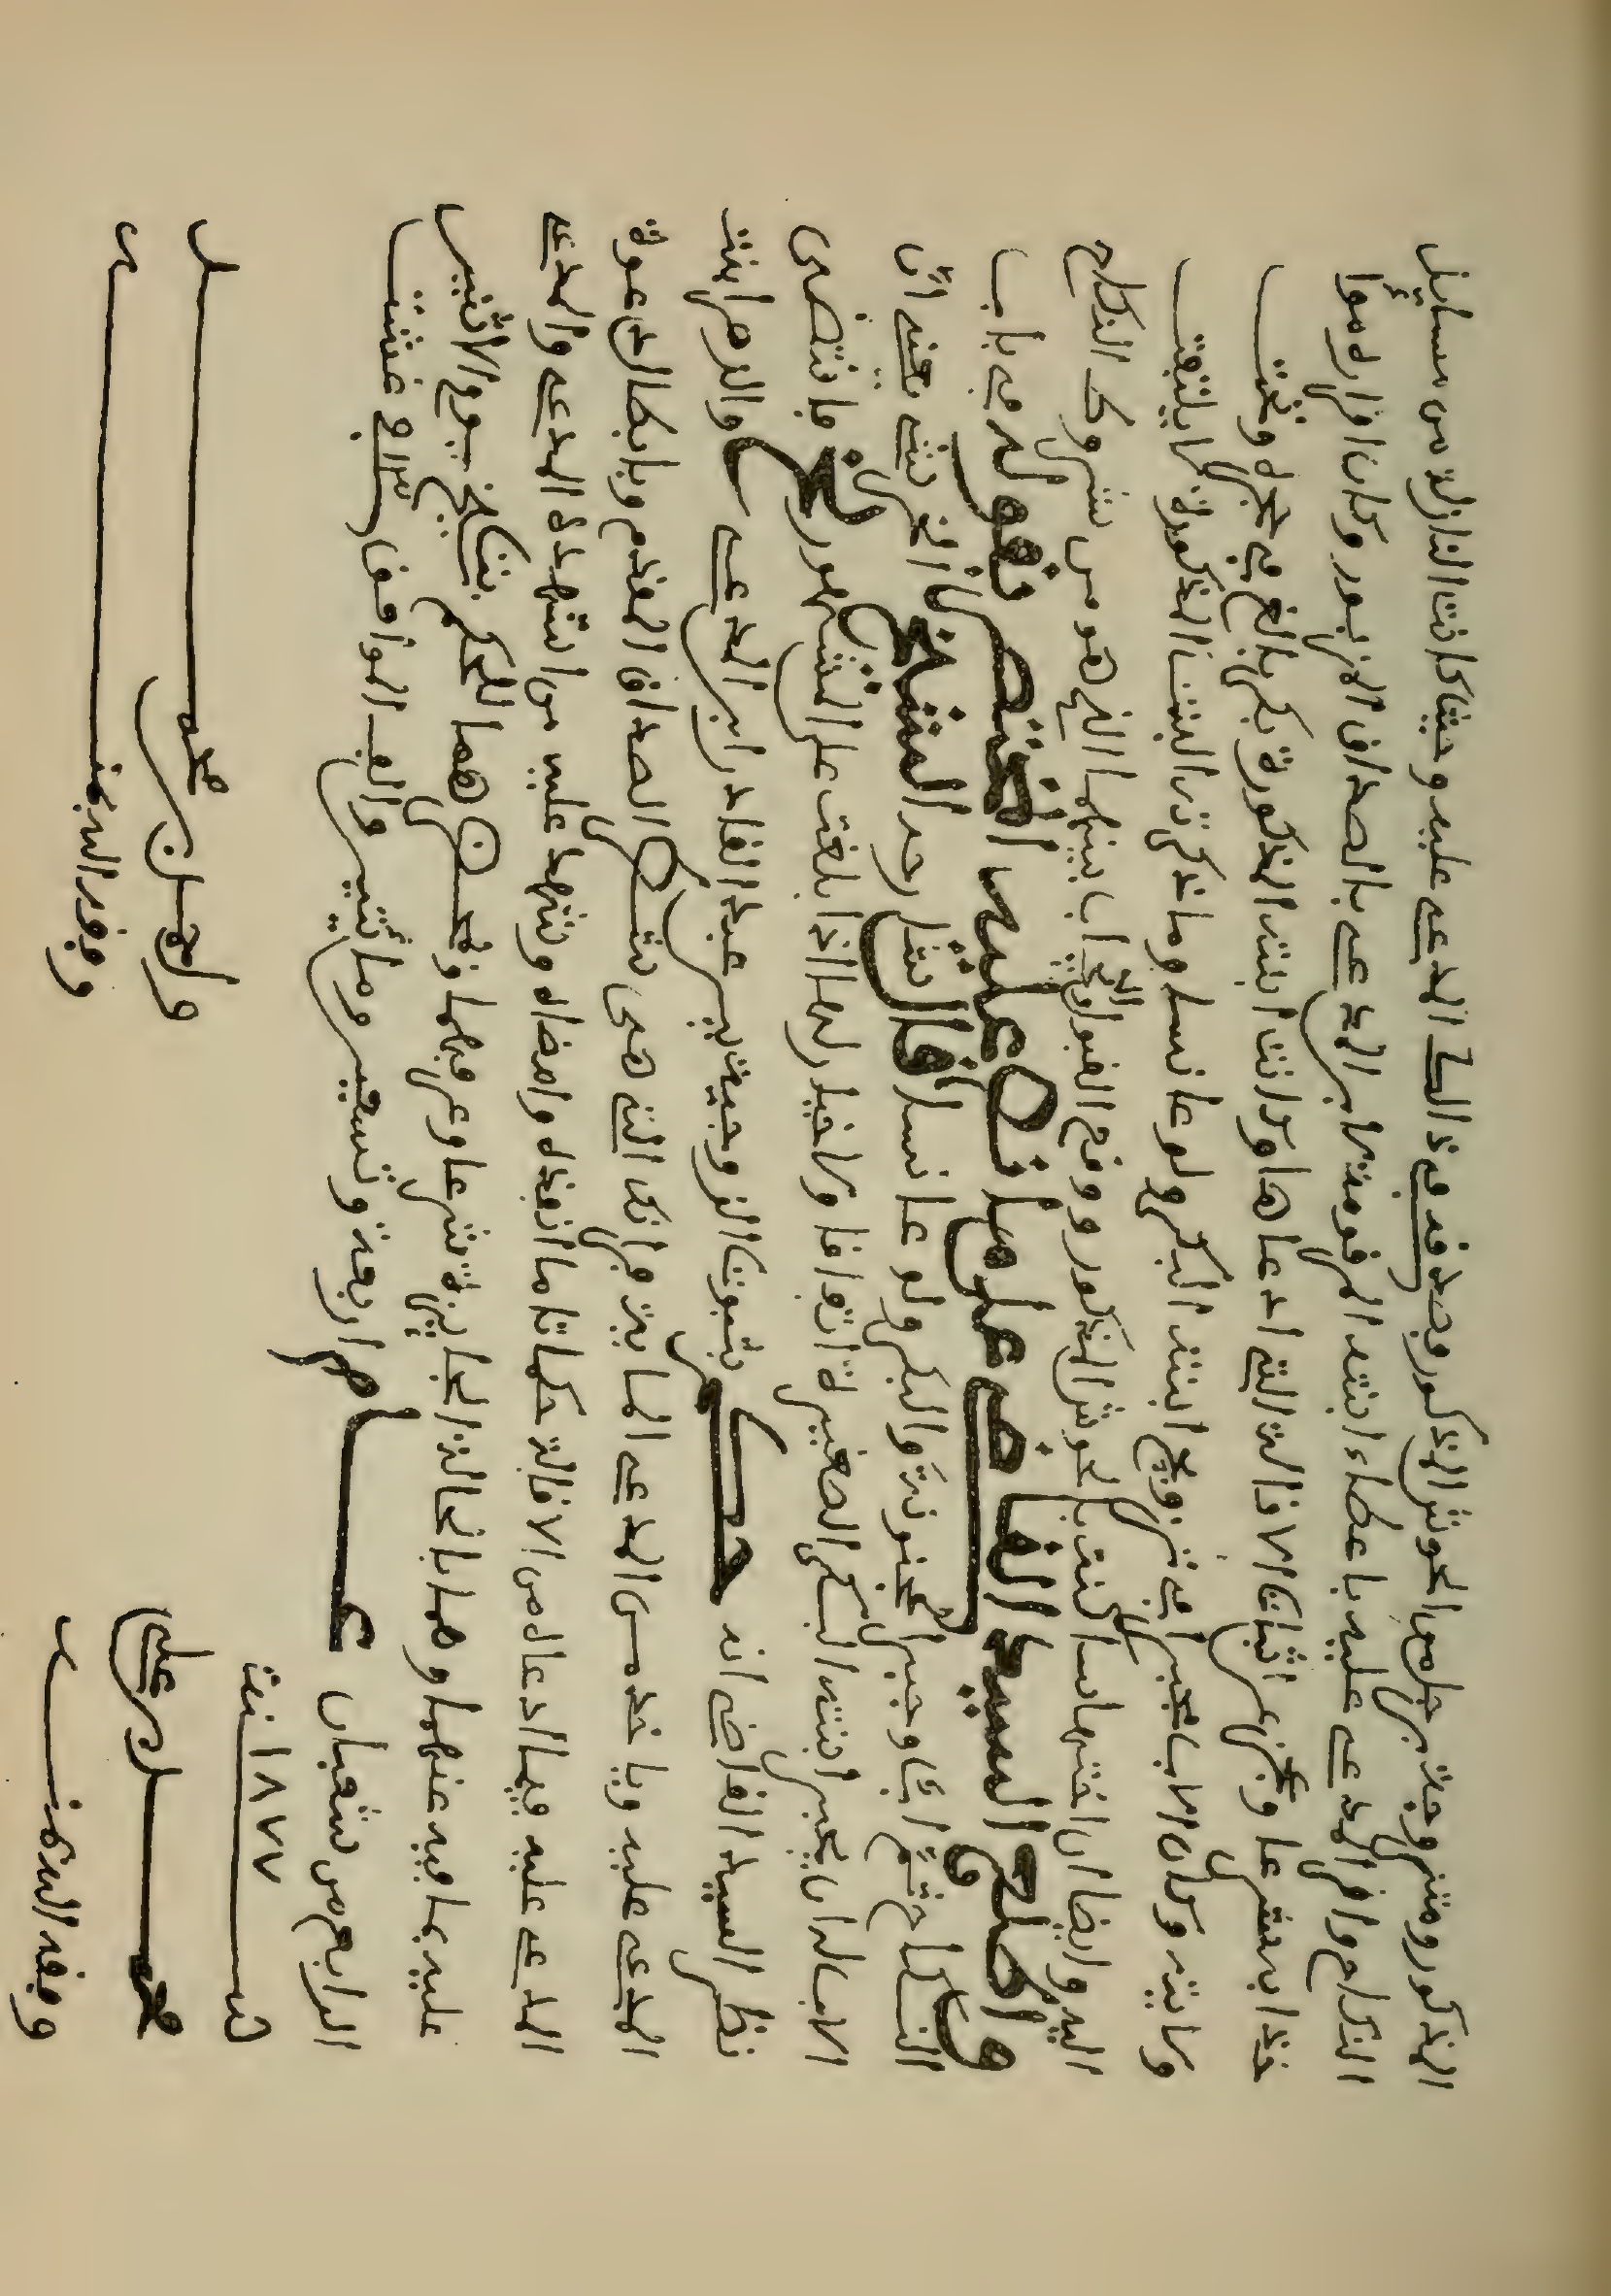 المذكور ومتزوجة برجل من الحوش المذكور وصدقه في ذالك المدعى عليه وحيث كانت النازلة من مسايل
النكاح واقر المدعى عليه باعطاء ابنته المرقومة لابن المدعى بالصداق المزبور وكان اقراره موا
خذا به شرعا وعجز عن اثبات الاقالة التي ادعاها وكانت ابنته المذكورة بكر بالغ في حجره وتحت
ولايته وكان الاب يجبر في تزويج ابنته البكر ولو عانسا وما ذكرته البنت المذكورة لا يلتفت
اليه وايضا ان اختها ساكنة بالحوش المذكور ووقع القبول ابا بينهما الذي هو من شروط النكاح
واطلع السيد القاضي على ما نص عليه المختصر ونقوله في باب
النكاح ثم اب وجبر المجنونة والبكر ولو عانسا قال شارحه الشيخ الخرشي يعني ان
الاب له ان يجبر ابنته البكر الصغيرة اتفاقا ولا خيار لها اذا بلغت على المشهور فاقتضى
نظر السيد القاضي انه حكم بثبوت الزوجية بين عبد القادر ابن المدعى والزهرا بنت
المدعى عليه وياخذ من المدعى المايتي فرانك التي هي شطر الصداق المقدم وبابطال دعوة
المدعى عليه فيما ادعاه من الاقالة حكما تاما انفذه وامضاه وشهد عليه من اشهده المدعى والمدعى
عليه بما فيه عنهما وهما بالحالة الجايزة شرعا وعرفهما وحضرهما للحكم بتاريخ يوم الاثنين
الرابع من شعبان عام اربعة وتسعين ومائتين والف الموافق غشت
سنة ١٨٧٧ انتهى